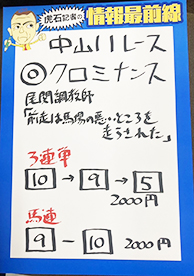 虎石記者の
情報最前線
中山11レース
◎クロミナンス
尾関調教師
「前走は馬場の悪いところを
走らされた」
3連単
10→9→5
2000円
馬連
9-10 2000円